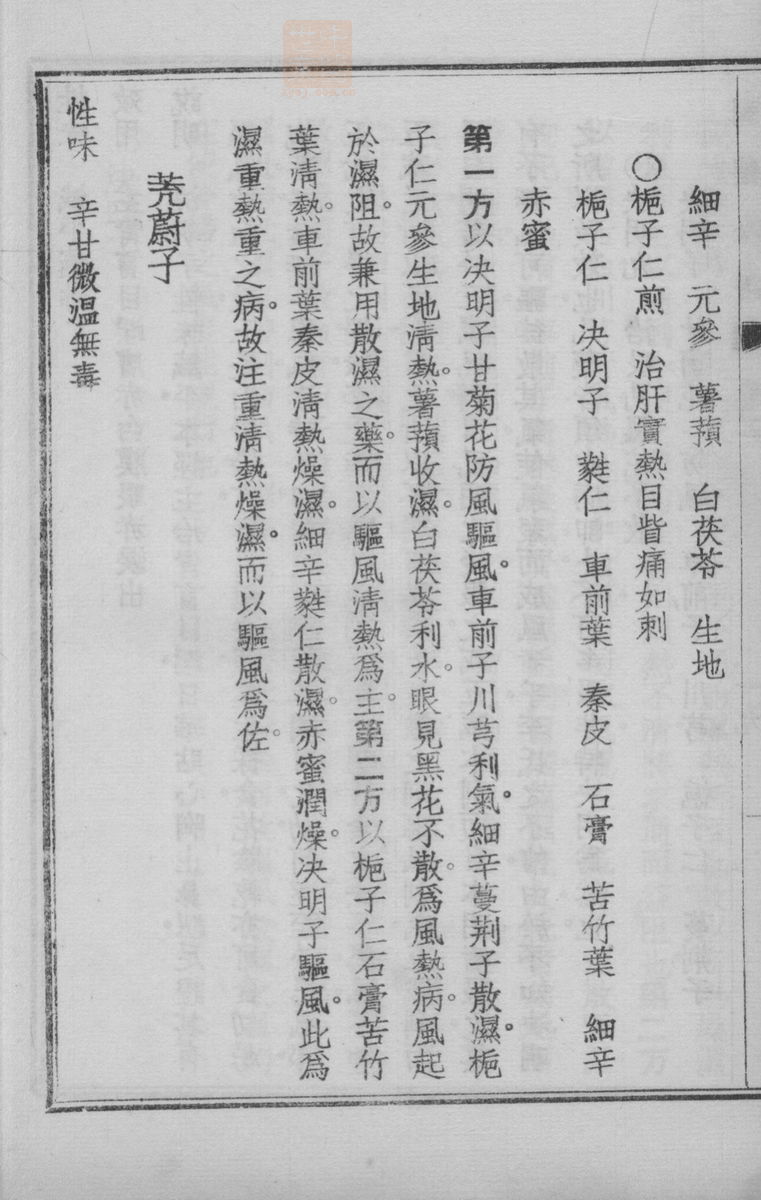 細辛　元參　薯蕷　白茯苓　生地
○梔子仁煎　治肝實熱目眥痛如刺
梔子仁　决明子　蕤仁　車前葉　秦皮　石膏　苦竹葉　細辛
赤蜜
第一方以决明子甘菊花防風驅風。車前子川芎利氣。細辛蔓荆子散濕。梔
子仁元參生地淸熱。薯蕷收濕。白茯苓利水。眼見黑花不散。爲風熱病。風起
於濕阻。故兼用散濕之藥。而以驅風淸熱爲主。第二方以梔子仁石膏苦竹
葉淸熱。車前葉秦皮淸熱燥濕。細辛蕤仁散濕。赤蜜潤燥。决明子驅風。此爲
濕重熱重之病。故注重淸熱燥濕。而以驅風爲佐。
茺蔚子
性味　辛甘微温無毒